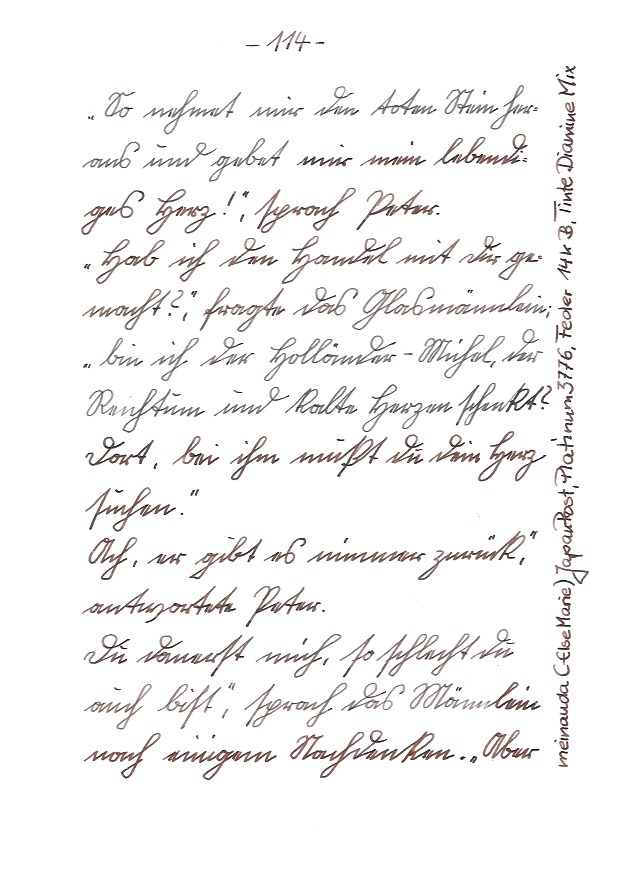 - 114 -
„So nehmet mir den toten Stein her=
aus und gebet mir mein lebendi=
ges Herz!", sprach Peter.
„Hab ich den Handel mit dir ge=
macht?", fragte das Glasmännlein;
„bin ich der Holländer-Michel, der
Reichtum und kalte Herzen schenkt?
Dort, bei ihm mußt du dein Herz
suchen."
Ach, er gibt es nimmer zurück",
antwortete Peter.
Du dauerst mich, so schlecht du
auch bist", sprach das Männlein
nach einigem Nachdenken. „Aber
meinauda (-ElseMarie) JapanPost, Platinum 3776, Feder 14k B, Tinte Diamine Mix